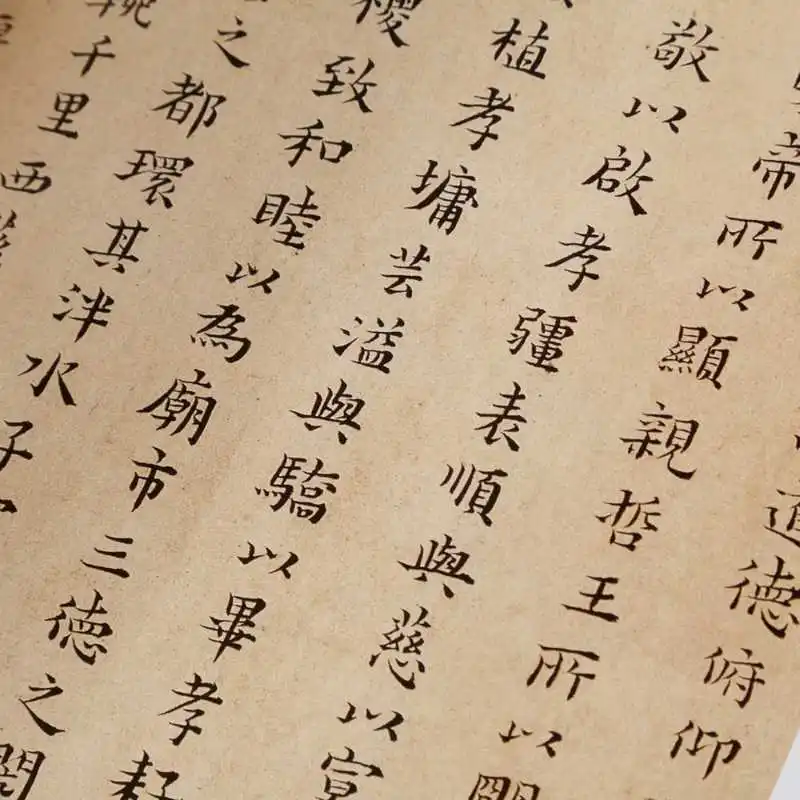 道德俯仰
帝所以顯親哲王所以
敬以啟孝疆表順與慈以
植孝墉芸溢與驕以畢孝
致和睦以為廟市三德之
之都環其泮水子
千里西